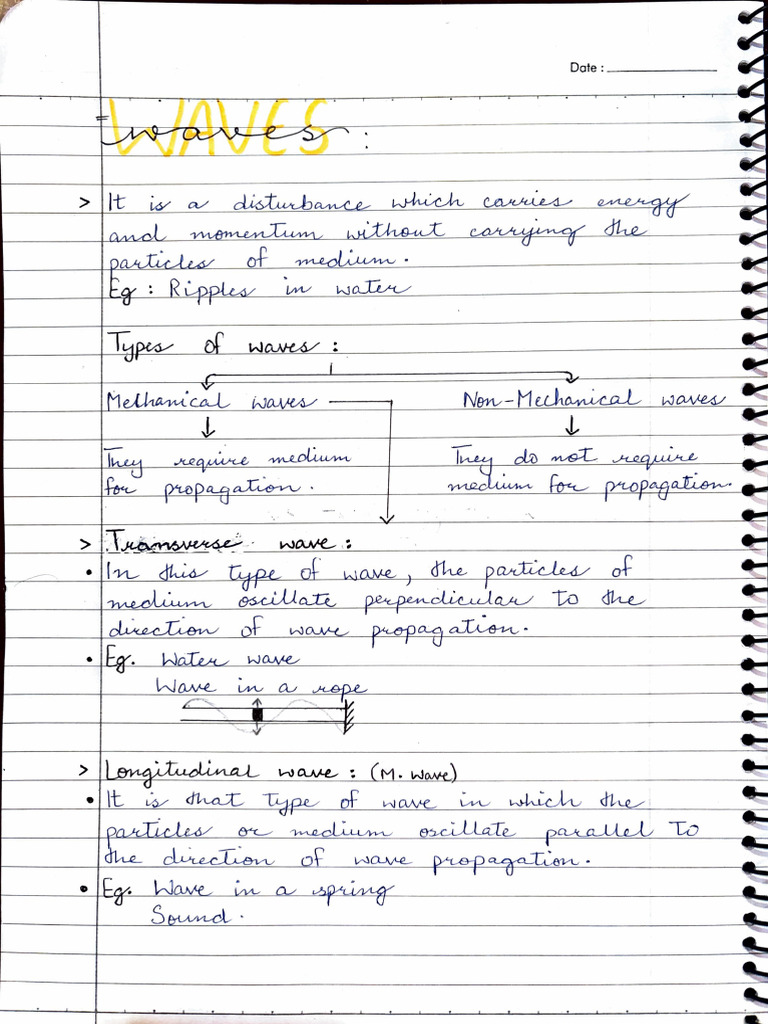 Date :
WAVES
waves :
> It is a disturbance which carries energy
and momentum without carrying the
particles of medium.
Eg : Ripples in water
Types of waves :
Mechanical waves
Non-Mechanical waves
They require medium
for propagation.
They do not require
medium for propagation.
> Transverse wave :
• In this type of wave, the particles of
medium oscillate perpendicular to the
direction of wave propagation.
• Eg. Water wave
Wave in a rope
> Longitudinal wave : (M. wave)
• It is that type of wave in which the
particles or medium oscillate parallel to
the direction of wave propagation.
• Eg. Wave in a spring
Sound.